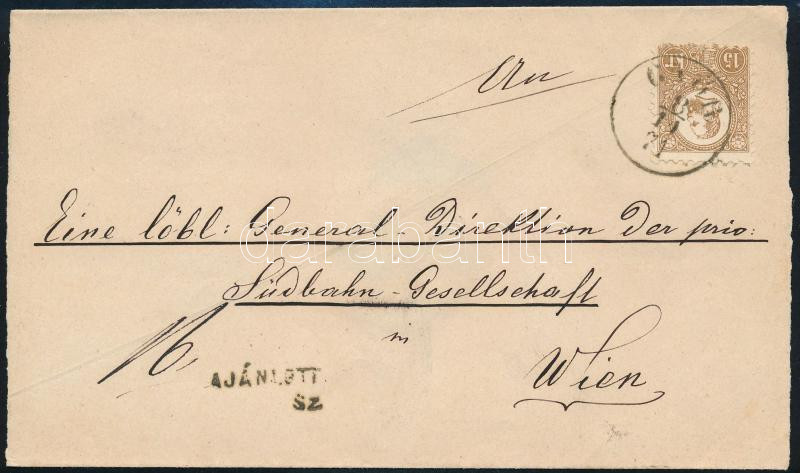 An
15 KR
8
11
71
Eine löbl: General-Direktion der priv:
Südbahn-Gesellschaft
in
Wien
AJÁNLOTT
SZ
darabanth